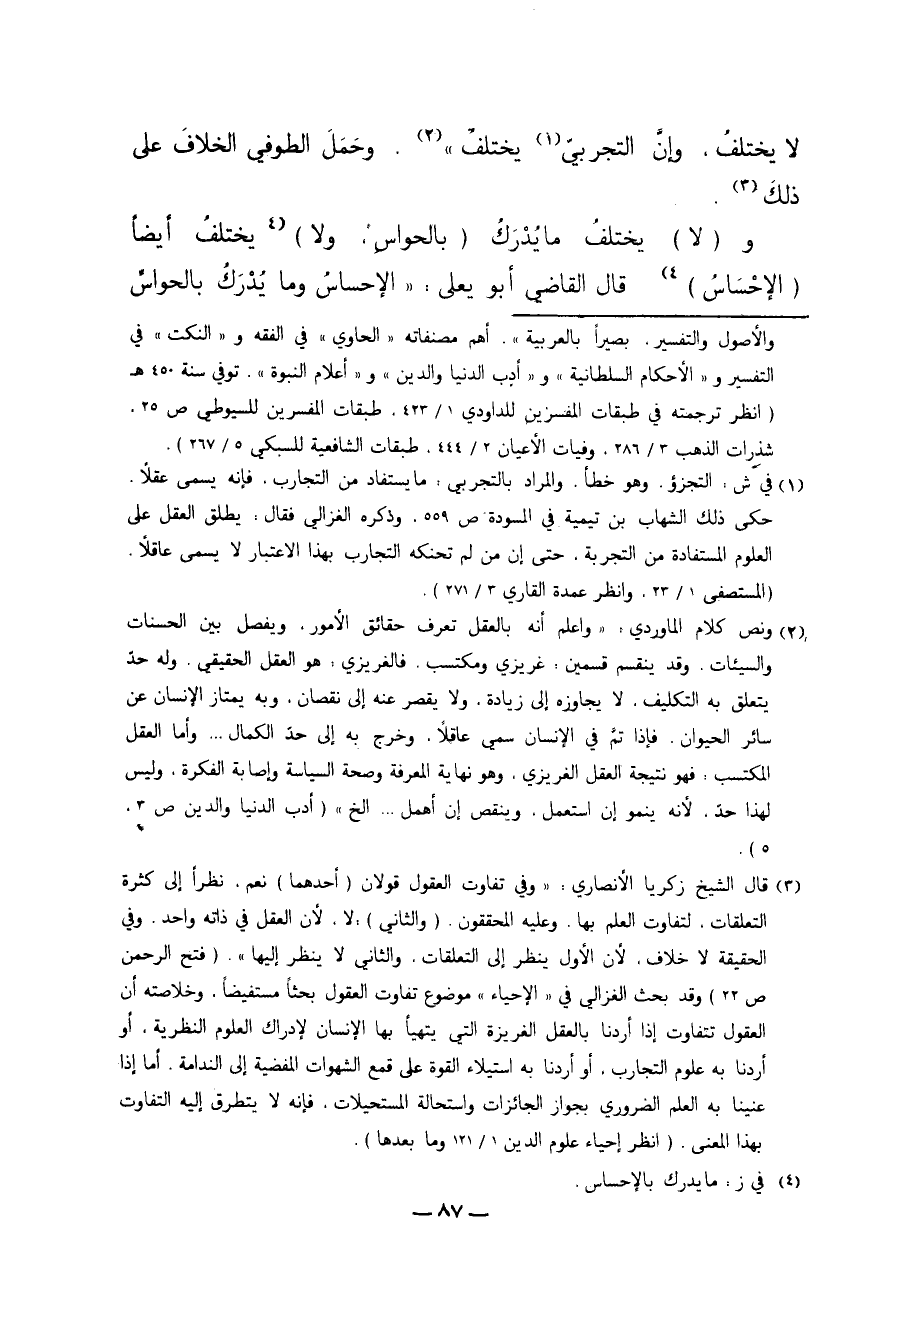 لا يختلفُ ، وإنَّ التجربيّ (١) يختلفُ » (٢) . وحَمَلَ الطوفي الخلافَ على
ذلكَ (٣) .
و ( لا ) يختلفُ مايُدْرَكُ ( بالحواسِ ، ولا ) (٤ يختلفُ أيضاً
( الإحْسَاسُ ) ٤) قال القاضي أبو يعلى : « الإحساسُ وما يُدْرَكُ بالحواسِّ
والأصول والتفسير ، بصيراً بالعربية » . أهم مصنفاته « الحاوي » في الفقه و « النكت » في
التفسير و « الأحكام السلطانية » و « أدب الدنيا والدين » و « أعلام النبوة » . توفي سنة ٤٥٠ هـ
( انظر ترجمته في طبقات المفسرين للداودي ١ / ٤٢٣ ، طبقات المفسرين للسيوطي ص ٢٥ ،
شذرات الذهب ٣ / ٢٨٦ ، وفيات الأعيان ٢ / ٤٤٤ ، طبقات الشافعية للسبكي ٥ / ٢٦٧ ) .
(١) في ش : التجزؤ . وهو خطأ . والمراد بالتجربي : مايستفاد من التجارب ، فإنه يسمى عقلاً .
حكى ذلك الشهاب بن تيمية في المسودة ص ٥٥٩ ، وذكره الغزالي فقال : يطلق العقل على
العلوم المستفادة من التجربة ، حتى إن من لم تحنكه التجارب بهذا الاعتبار لا يسمى عاقلاً .
(المستصفى ١ / ٢٣ ، وانظر عمدة القاري ٣ / ٢٧١ ) .
(٢) ونص كلام الماوردي : « واعلم أنه بالعقل تعرف حقائق الأمور ، ويفصل بين الحسنات
والسيئات . وقد ينقسم قسمين : غريزي ومكتسب . فالغريزي : هو العقل الحقيقي . وله حدّ
يتعلق به التكليف ، لا يجاوزه إلى زيادة ، ولا يقصر عنه إلى نقصان ، وبه يمتاز الإنسان عن
سائر الحيوان . فإذا تمَّ في الإنسان سمي عاقلاً ، وخرج به إلى حدّ الكمال ... وأما العقل
المكتسب : فهو نتيجة العقل الغريزي ، وهو نهاية المعرفة وصحة السياسة وإصابة الفكرة ، وليس
لهذا حدّ ، لأنه ينمو إن استعمل ، وينقص إن أهمل ... الخ » ( أدب الدنيا والدين ص ٣ ،
٥ ) .
(٣) قال الشيخ زكريا الأنصاري : « وفي تفاوت العقول قولان ( أحدهما ) نعم ، نظراً إلى كثرة
التعلقات ، لتفاوت العلم بها . وعليه المحققون . ( والثاني ) :لا ، لأن العقل في ذاته واحد . وفي
الحقيقة لا خلاف ، لأن الأول ينظر إلى التعلقات ، والثاني لا ينظر إليها » . ( فتح الرحمن
ص ٢٢ ) وقد بحث الغزالي في « الإحياء » موضوع تفاوت العقول بحثاً مستفيضاً ، وخلاصته أن
العقول تتفاوت إذا أردنا بالعقل الغريزة التي يتهيأ بها الإنسان لإدراك العلوم النظرية ، أو
أردنا به علوم التجارب ، أو أردنا به استيلاء القوة على قمع الشهوات المفضية إلى الندامة . أما إذا
عنينا به العلم الضروري بجواز الجائزات واستحالة المستحيلات ، فإنه لا يتطرق إليه التفاوت
بهذا المعنى . ( انظر إحياء علوم الدين ١ / ١٢١ وما بعدها ) .
(٤) في ز : مايدرك بالإحساس .
— ٨٧ —